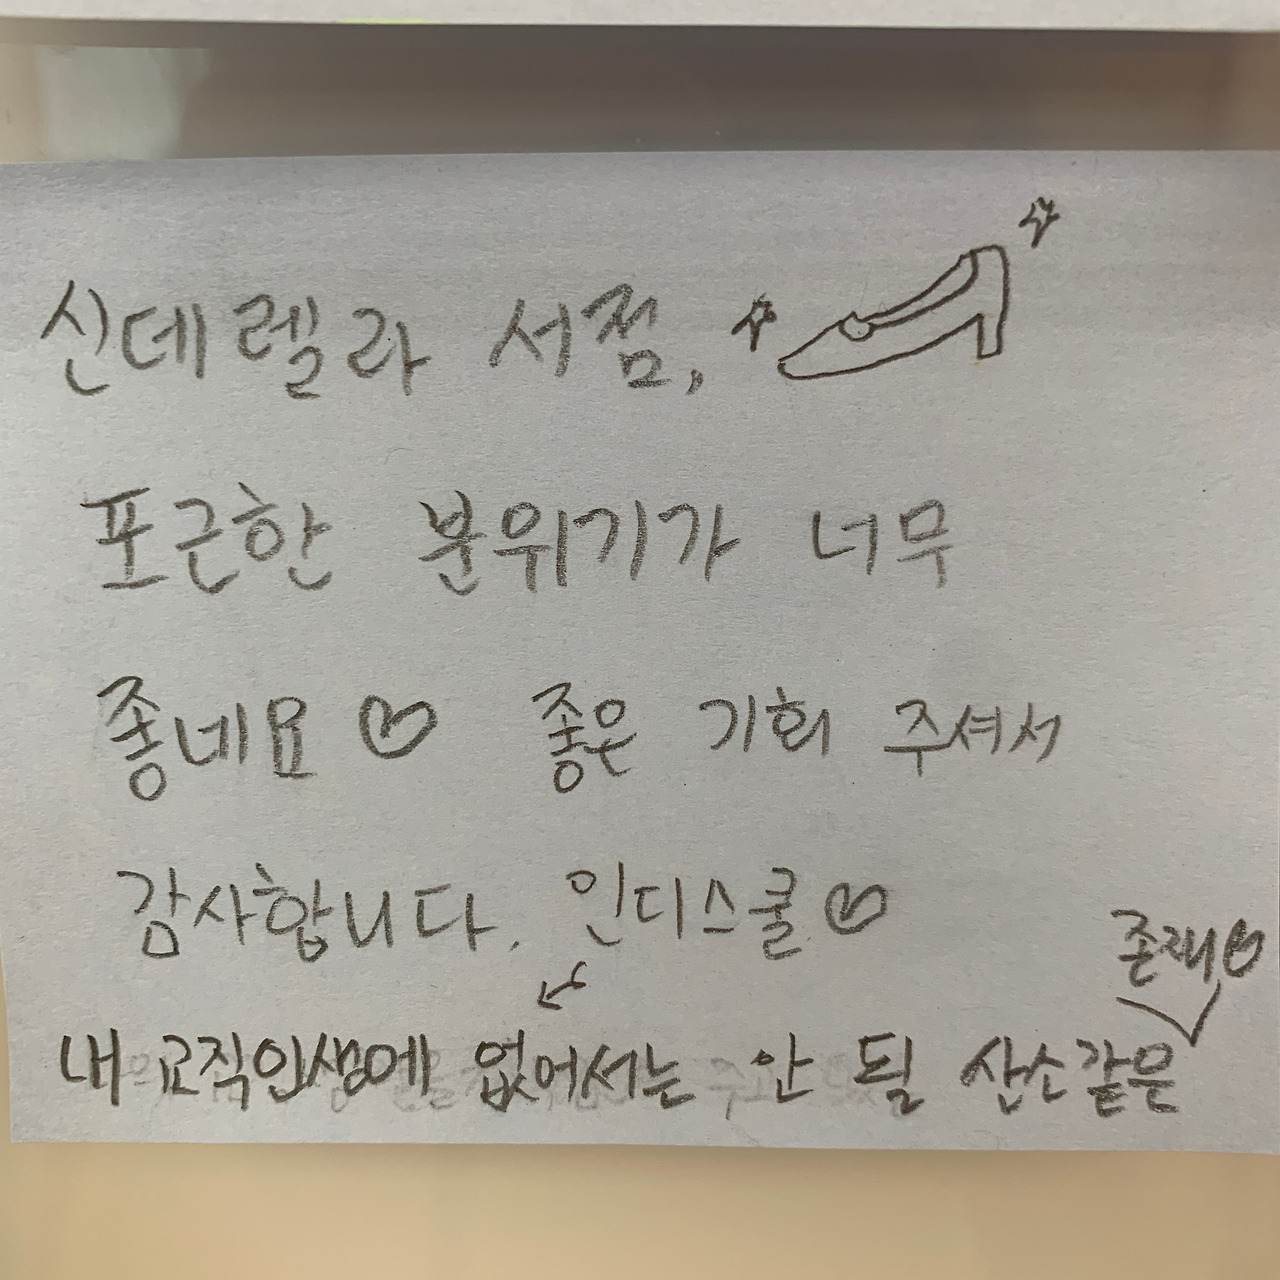 신데렐라 서점,
포근한 분위기가 너무
좋네요♡ 좋은 기회 주셔서
감사합니다. 인디스쿨♡
내 교직인생에 없어서는 안 될 산소같은
존재♡